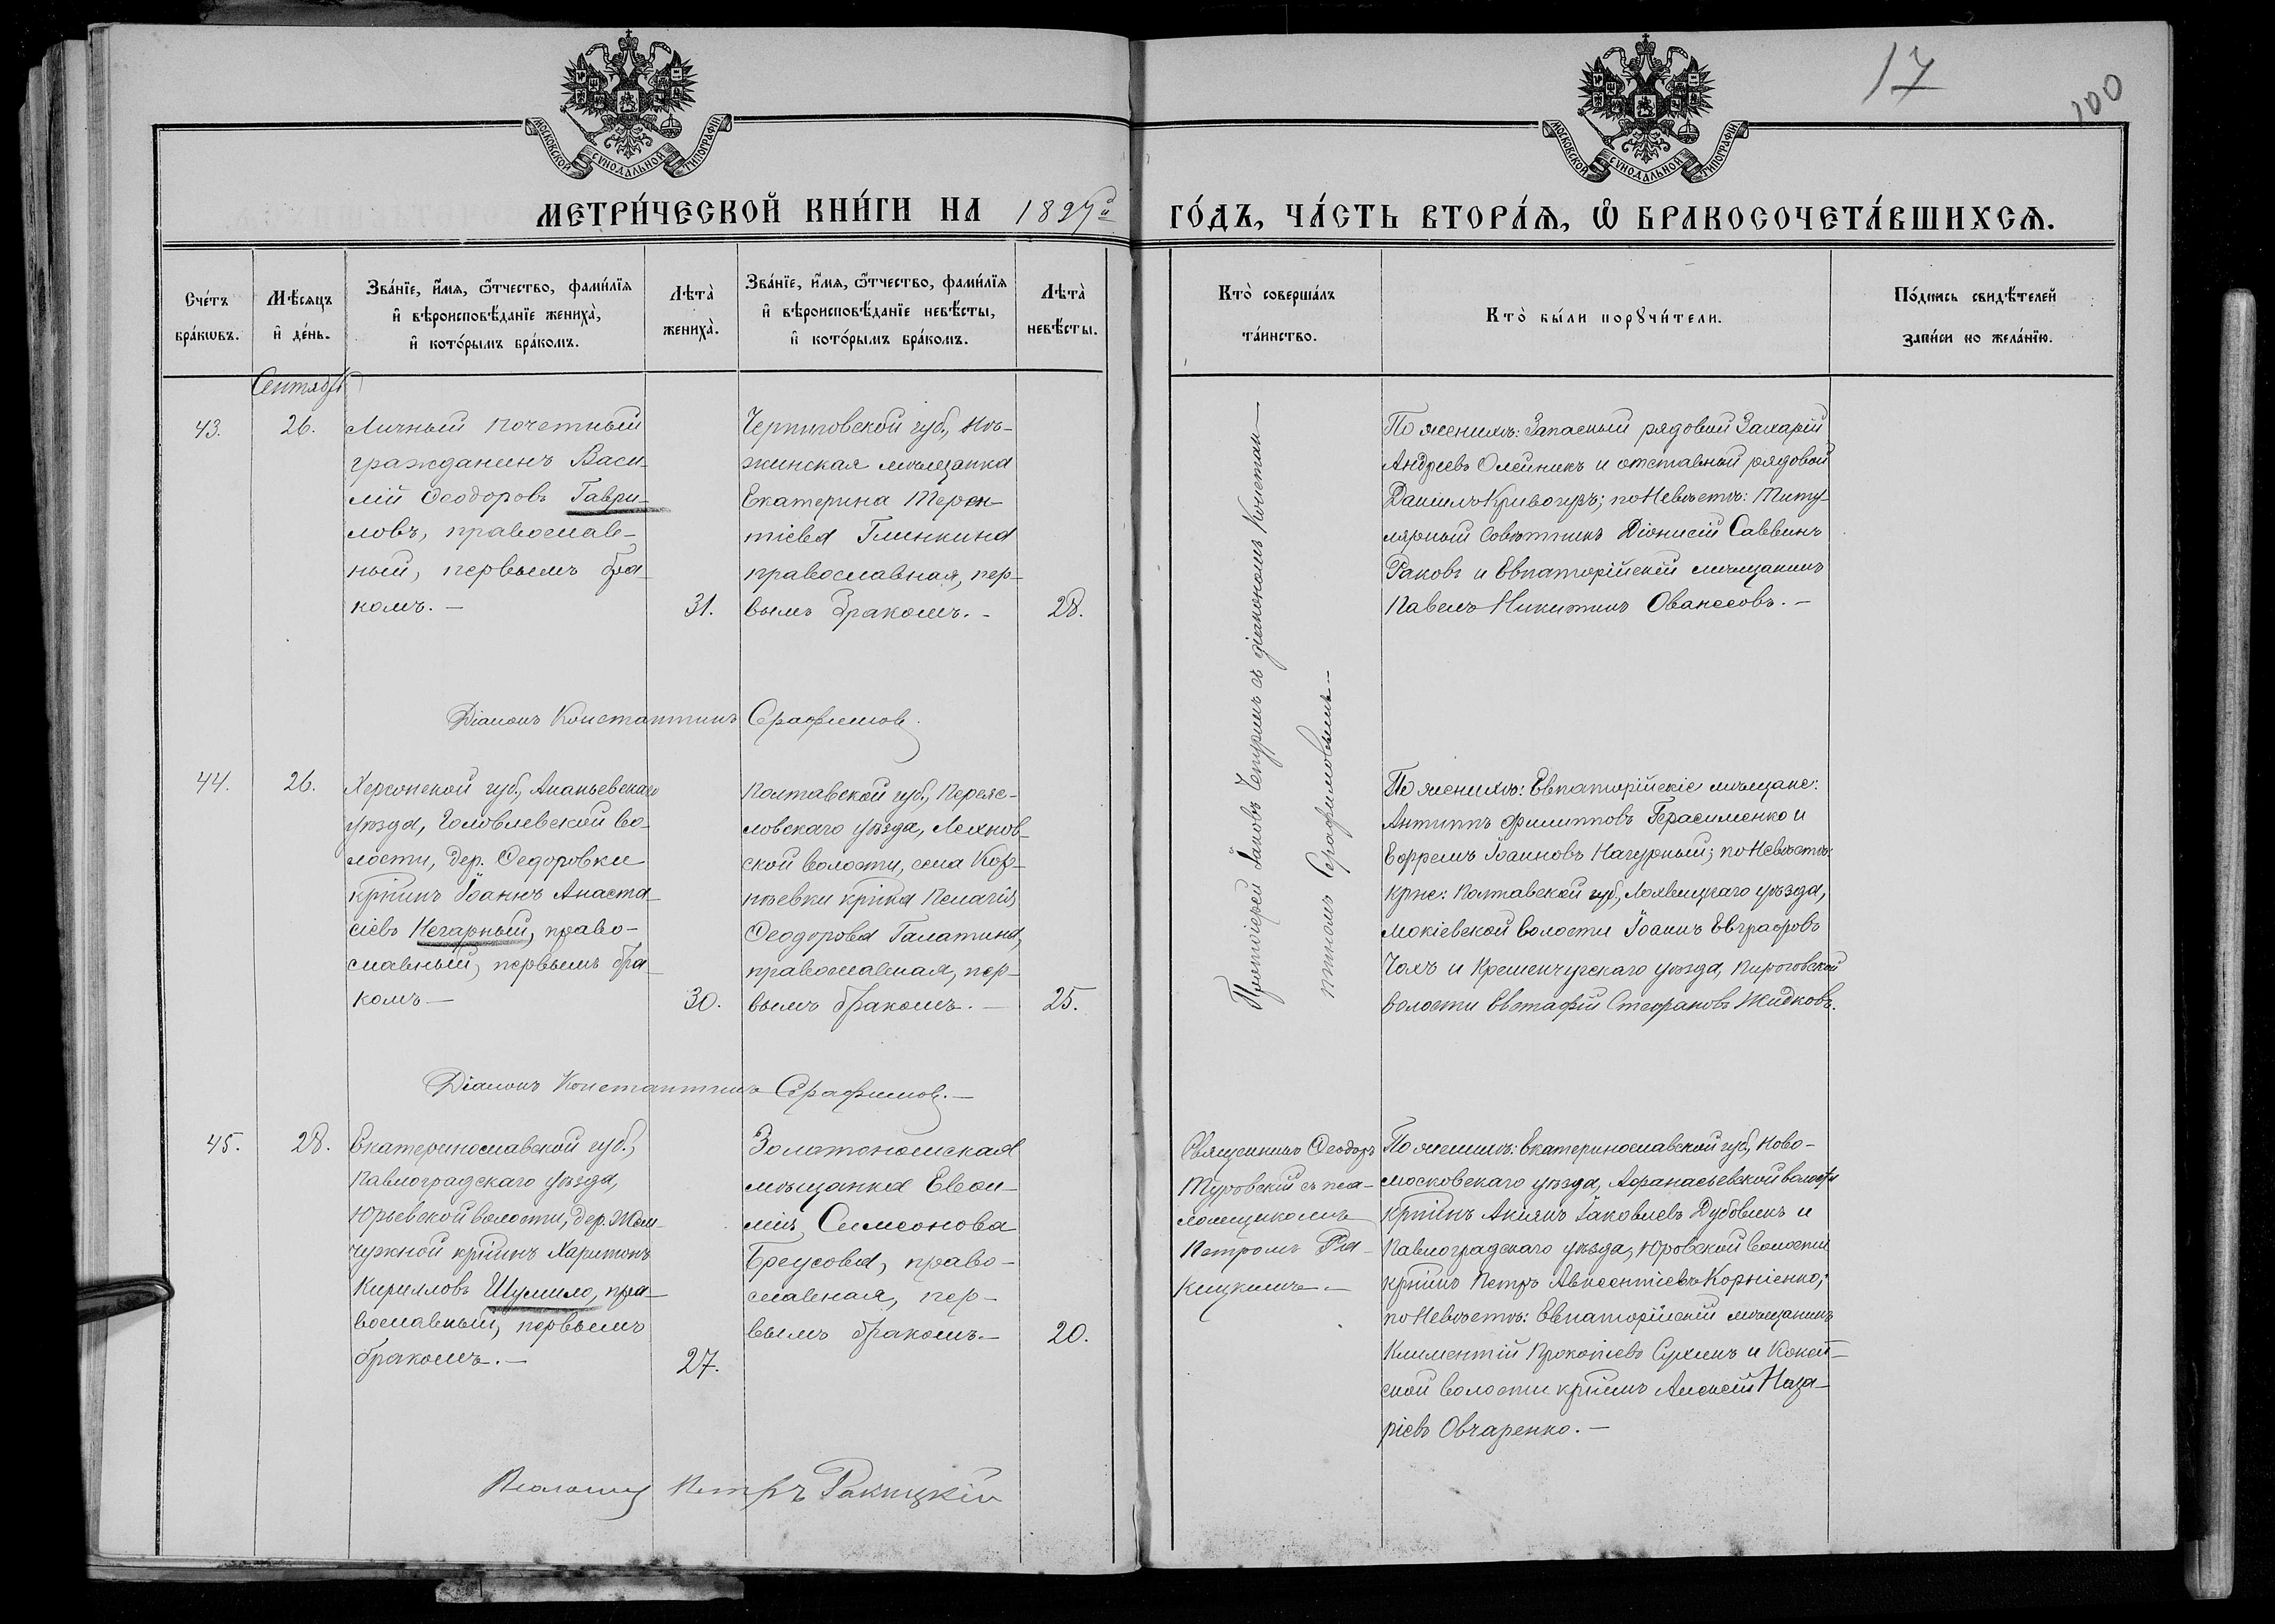 17
100
МОСКОВСКОЙ СѴНОДАЛЬНОЙ ТИПОГРАФІИ
МОСКОВСКОЙ СѴНОДАЛЬНОЙ ТИПОГРАФІИ
МЕТРИ́ЧЕСКОЙ КНИ́ГИ НА 1897й ГО́ДЪ, ЧА́СТЬ ВТОРА́Ѧ, Ѡ БРАКОСОЧЕТА́ВШИХСѦ.
Сче́тъ
бра́кѡвъ.
Мѣ́сѧцъ
и҆ де́нь.
Зва́нїе, и҆́мѧ, ѻ҆́тчество, фами́лїѧ
и҆ вѣроисповѣ́данїе жениха̀,
и҆ кото́рымъ бра́комъ.
Лѣта̀
жениха̀.
Зва́нїе, и҆́мѧ, ѻ҆́тчество, фами́лїѧ
и҆ вѣроисповѣ́данїе невѣ́сты,
и҆ кото́рымъ бра́комъ.
Лѣта̀
невѣ́сты.
Кто̀ соверша́лъ
та́инство.
Кто̀ бы́ли порꙋчи́тели.
По́дпись свидѣ́телей
за́писи по жела́нїю.
Сентябрь
43.
26.
Личный почетный
гражданинъ Васи-
лій Ѳеодоровъ Гаври-
ловъ, православ-
ный, первымъ бра-
комъ. —
31.
Черниговской губ., Нѣ-
жинская мѣщанка
Екатерина Терен-
тіева Глинкина
православная, пер-
вымъ бракомъ. -
28.
Протоіерей Іаковъ Чепуринъ съ діакономъ Констан-
тиномъ Серафимовымъ. -
По женихѣ: Запасный рядовой Захарій
Андреевъ Олейникъ и отставный рядовой
Даніилъ Кривогузъ; по Невѣстѣ: Титу-
лярный Совѣтникъ Діонисій Саввинъ
Раковъ и Евпаторійскій мѣщанинъ
Павелъ Никитинъ Ованесовъ. -
Діаконъ Константинъ Серафимовъ.
44.
26.
Херсонской губ., Ананьевскаго
уѣзда, Головлевской во-
лости, дер. Ѳедоровки
крнинъ Іоаннъ Анаста-
сіевъ Негарный, право-
славный, первымъ бра-
комъ —
30.
Полтавской губ., Переяс-
ловскаго уѣзда, Лехнов-
ской волости, села Кор-
нѣевки крнка Пелагія
Ѳеодорова Галатина,
православная, пер-
вымъ бракомъ. —
25.
По женихѣ: Евпаторійскіе мѣщане:
Антиппъ Филипповъ Герасименко и
Ефремъ Іоанновъ Нагурный; по Невѣстѣ:
крне: Полтавской губ., Лохвицкаго уѣзда,
Мокіевской волости Іоаннъ Евграфовъ
Чолъ и Кременчугскаго уѣзда, Пироговской
волости Евстафій Стефановъ Жидковъ.
Діаконъ Константинъ Серафимовъ. —
45.
28.
Екатеринославской губ.,
Павлоградскаго уѣзда,
Юрьевской волости, дер. Жем-
чужной крнинъ Харитонъ
Кирилловъ Шумило, пра-
вославный, первымъ
бракомъ. —
27.
Золотоношская
мѣщанка Евѳи-
мія Симеонова
Бреусова, право-
славная, пер-
вымъ бракомъ. -
20.
Священникъ Ѳеодоръ
Туровскій съ пса-
ломщикомъ
Петромъ Ра-
кицкимъ. —
По женихѣ: Екатеринославской губ., Ново-
московскаго уѣзда, Афанасьевской волости
крнинъ Акимъ Іаковлевъ Дубовикъ и
Павлоградскаго уѣзда, Юровской волости
крнинъ Петръ Авксентіевъ Корніенко;
по Невѣстѣ: Евпаторійскій мѣщанинъ
Климентій Прокопіевъ Сухинъ и Коней-
ской волости крнинъ Алексій Наза-
ріевъ Овчаренко. —
Псаломщ Петръ Ракицкій